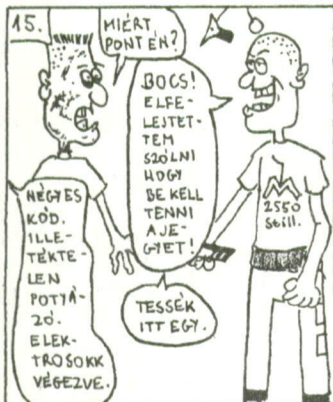 15.
MIÉRT
PONT ÉN?
BOCS!
ELFE-
LEJTET-
TEM
SZÓLNI
HOGY
BE KELL
TENNI
A JE-
GYET!
2550
Still.
NÉGYES
KÓD.
ILLE-
TÉKTE-
LEN
POTYÁ-
ZÓ.
ELEK-
TROSOKK
VÉGEZVE.
TESSÉK
ITT EGY.